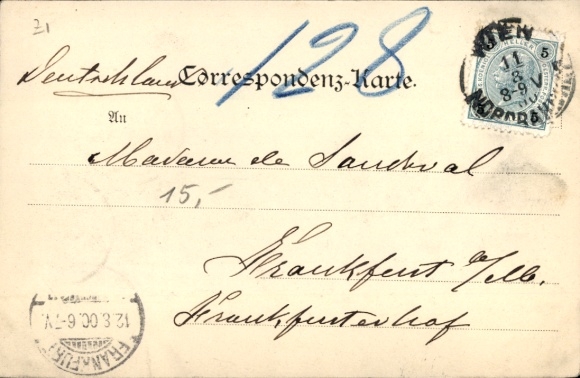 Z1
128
Deutschland Correspondenz-Karte.
An
Madame de Sandval
15,-
Frankfurt a/M.
Frankfurterhof
WIEN
5 HELLER 5
11
8
8-9.V
NORDBAHNHOF
5
12.8.00.6-7.V.
FRANKFURT